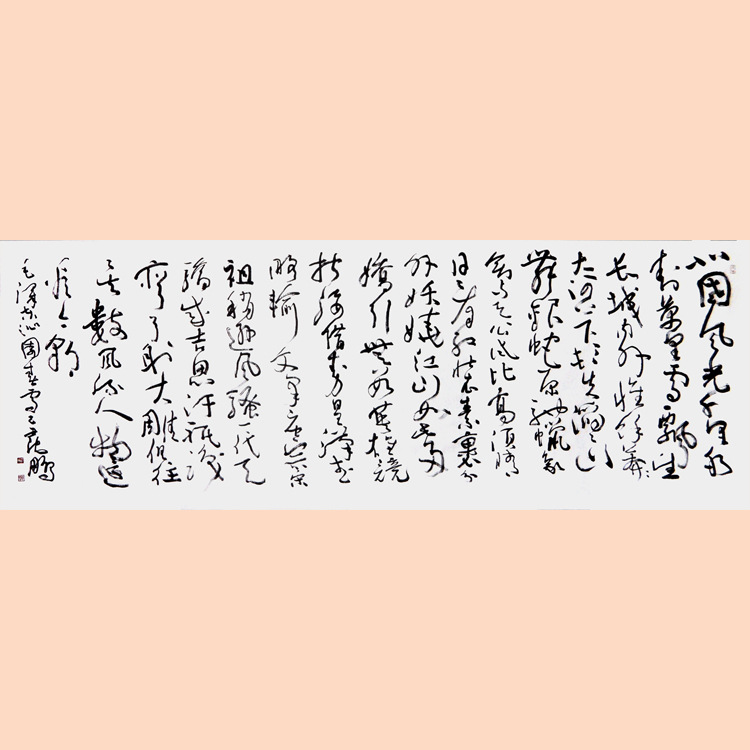 北國风光千里冰
封萬里雪飄望
长城内外惟馀莽莽
大河上下顿失滔滔山
舞银蛇原驰蜡象
欲与天公试比高须晴
日看红装素裹分
外妖娆江山如此多
娇引無数英雄競
折腰惜秦皇漢武
略输文采唐宗宋
祖稍逊风骚一代天
骄成吉思汗祇识
弯弓射大雕俱往
矣數风流人物还
看今朝
毛澤东沁園春雪 鹏